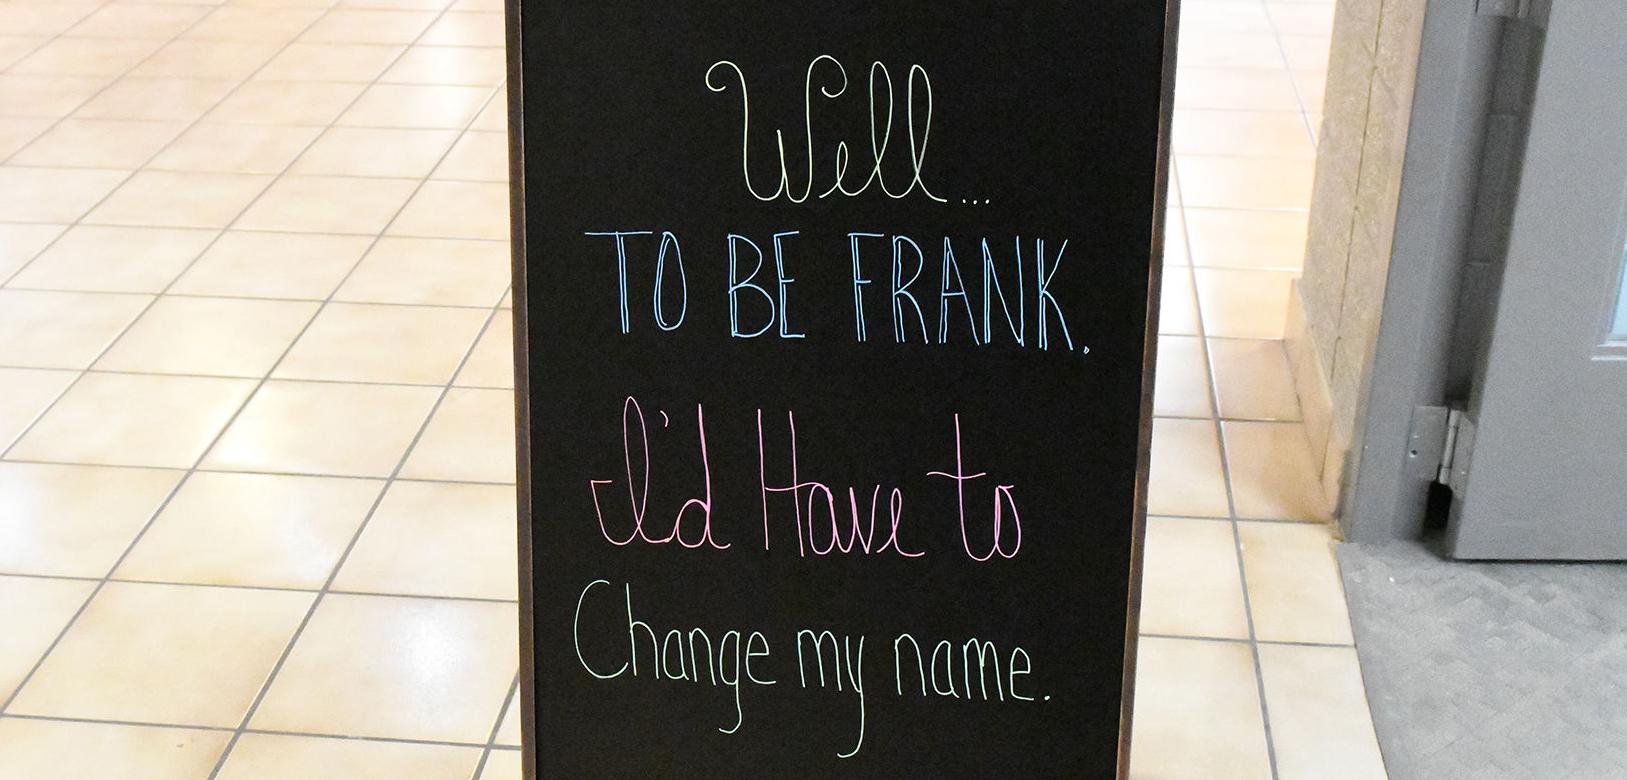 Well...
TO BE FRANK.
I'd Have to
Change my name.